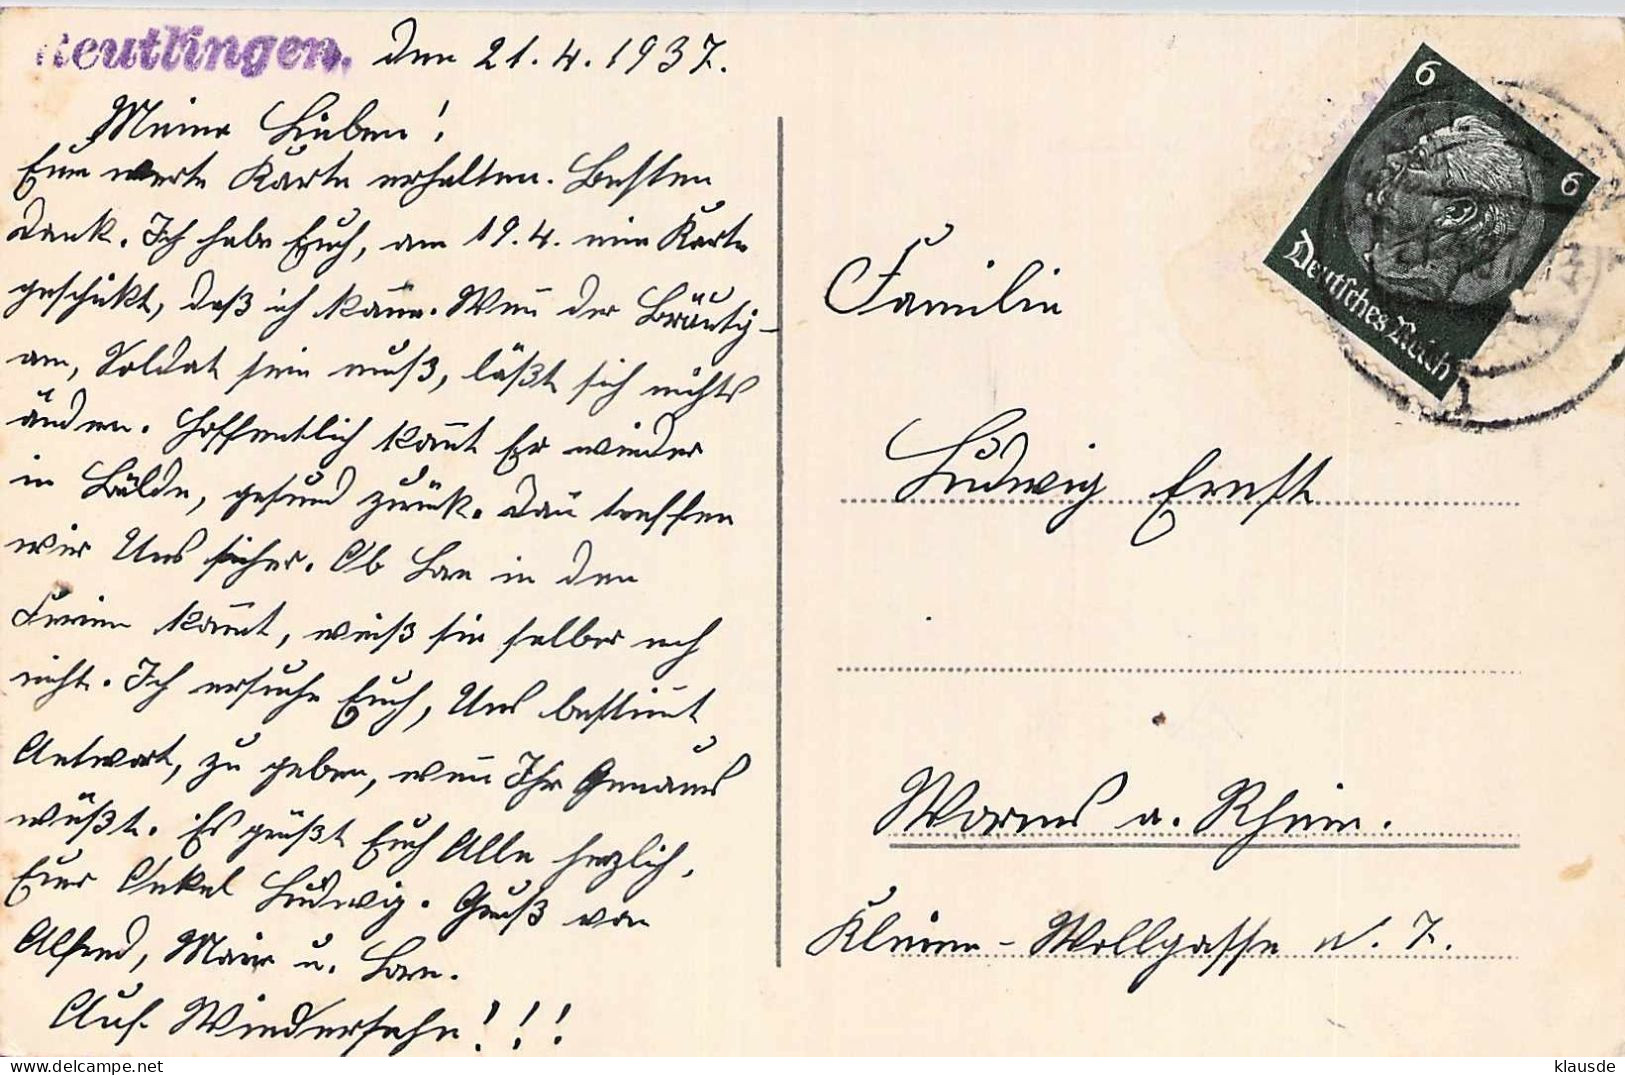 Reutlingen, den 21.4.1937.
Meine Lieben!
Eure werte Karte erhalten. Besten
Dank. Ich habe Euch, am 19.4. eine Karte
geschickt, daß ich kom̅e. Wen̅ der Bräutig-
am, Soldat sein muß, läßt sich nichts
ändern. Hoffentlich kom̅t Er wieder
in Bälde, gesund zurück. Dan̅ treffen
wir Uns sicher. Ob in den
Ferien kom̅t, weiß sie selber noch
nicht. Ich ersuche Euch, Uns bestim̅t
Antwort, zu geben, wen̅ Ihr Genaues
wüßt. Es grüßt Euch Alle herzlich,
Euer Onkel Ludwig. Gruß von
Alfred, u.
Auf Wiedersehn!!!
6
6
Deutsches Reich
Familie
Ludwig Ernst
Worms a. Rhein.
Kleine-Wollgasse N. 7.
klausde